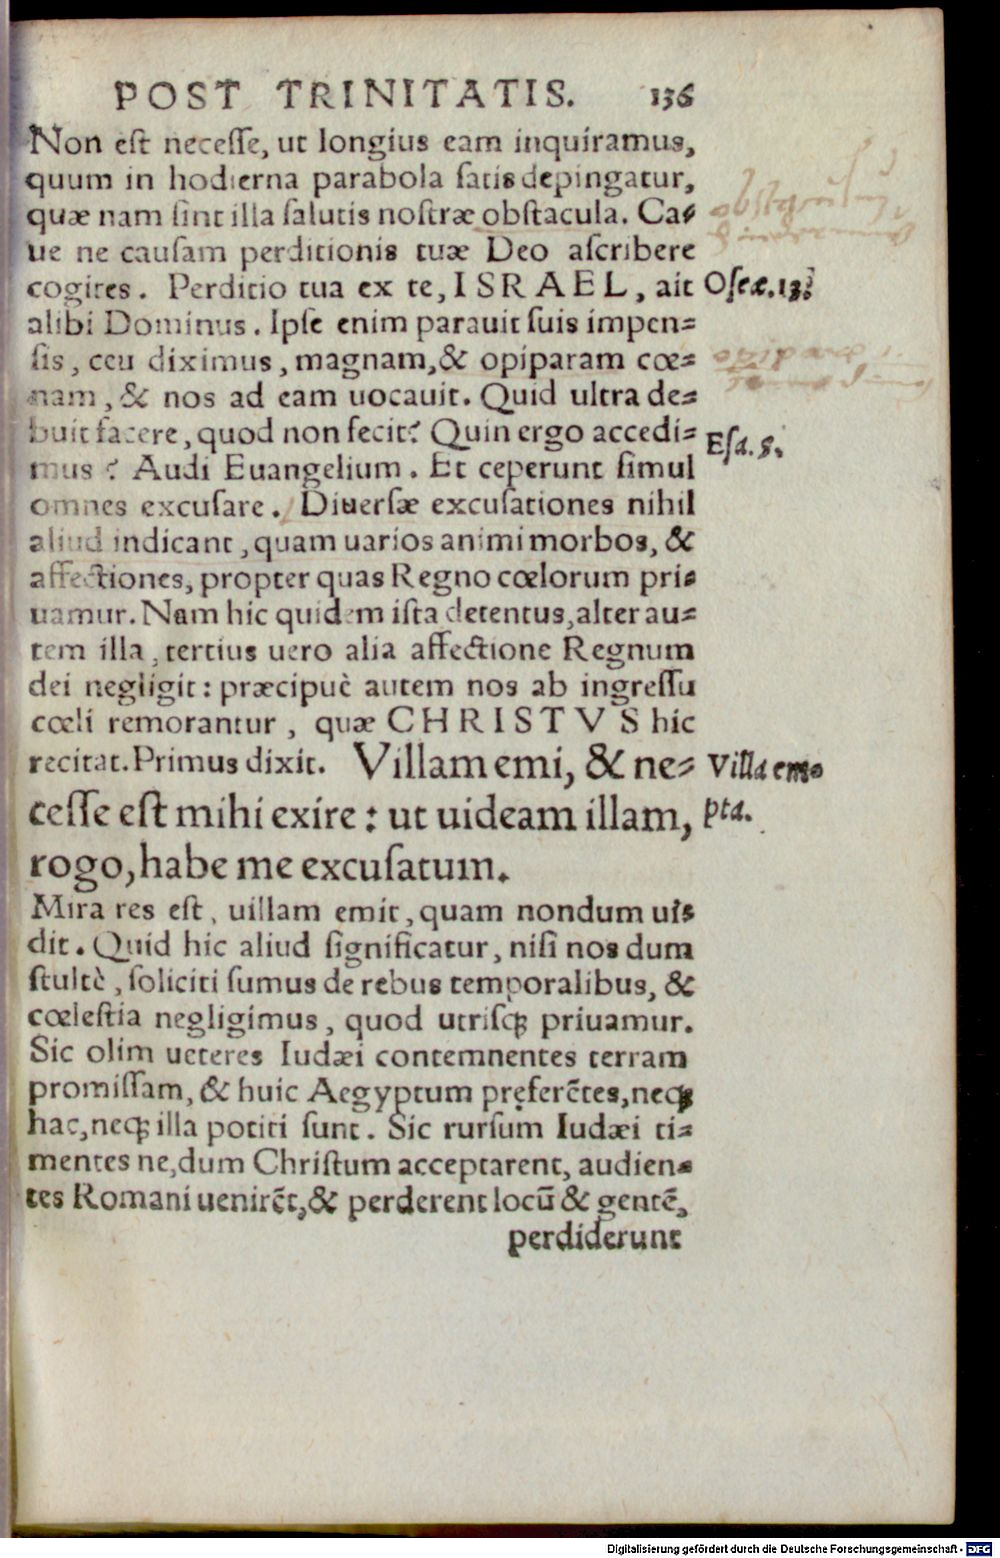 POST TRINITATIS. 136
Non est necesse, ut longius eam inquiramus,
quum in hodierna parabola satis depingatur,
quæ nam sint illa salutis nostræ obstacula. Ca-
ue ne causam perditionis tuæ Deo ascribere
cogites. Perditio tua ex te, ISRAEL, ait
Oseæ. 13.
alibi Dominus. Ipse enim parauit suis impen-
sis, ceu diximus, magnam, & opiparam cœ-
nam, & nos ad eam uocauit. Quid ultra de-
buit facere, quod non fecit? Quin ergo accedi-
Esa. 5.
mus? Audi Euangelium. Et ceperunt simul
omnes excusare. Diuersæ excusationes nihil
aliud indicant, quam uarios animi morbos, &
affectiones, propter quas Regno cœlorum pri-
uamur. Nam hic quidem ista detentus, alter au-
tem illa, tertius uero alia affectione Regnum
dei negligit: præcipuè autem nos ab ingressu
cœli remorantur, quæ CHRISTVS hic
recitat. Primus dixit. Villam emi, & ne-
Villa em-
cesse est mihi exire: ut uideam illam,
pta.
rogo, habe me excusatum.
Mira res est, uillam emit, quam nondum uis
dit. Quid hic aliud significatur, nisi nos dum
stultè, soliciti sumus de rebus temporalibus, &
cœlestia negligimus, quod utrisq; priuamur.
Sic olim ueteres Iudæi contemnentes terram
promissam, & huic Aegyptum pręferẽtes, neq;
hac, neq; illa potiti sunt. Sic rursum Iudæi ti-
mentes ne, dum Christum acceptarent, audien-
tes Romani uenirẽt, & perderent locũ & gentẽ,
perdiderunt
Digitalisierung gefördert durch die Deutsche Forschungsgemeinschaft - DFG